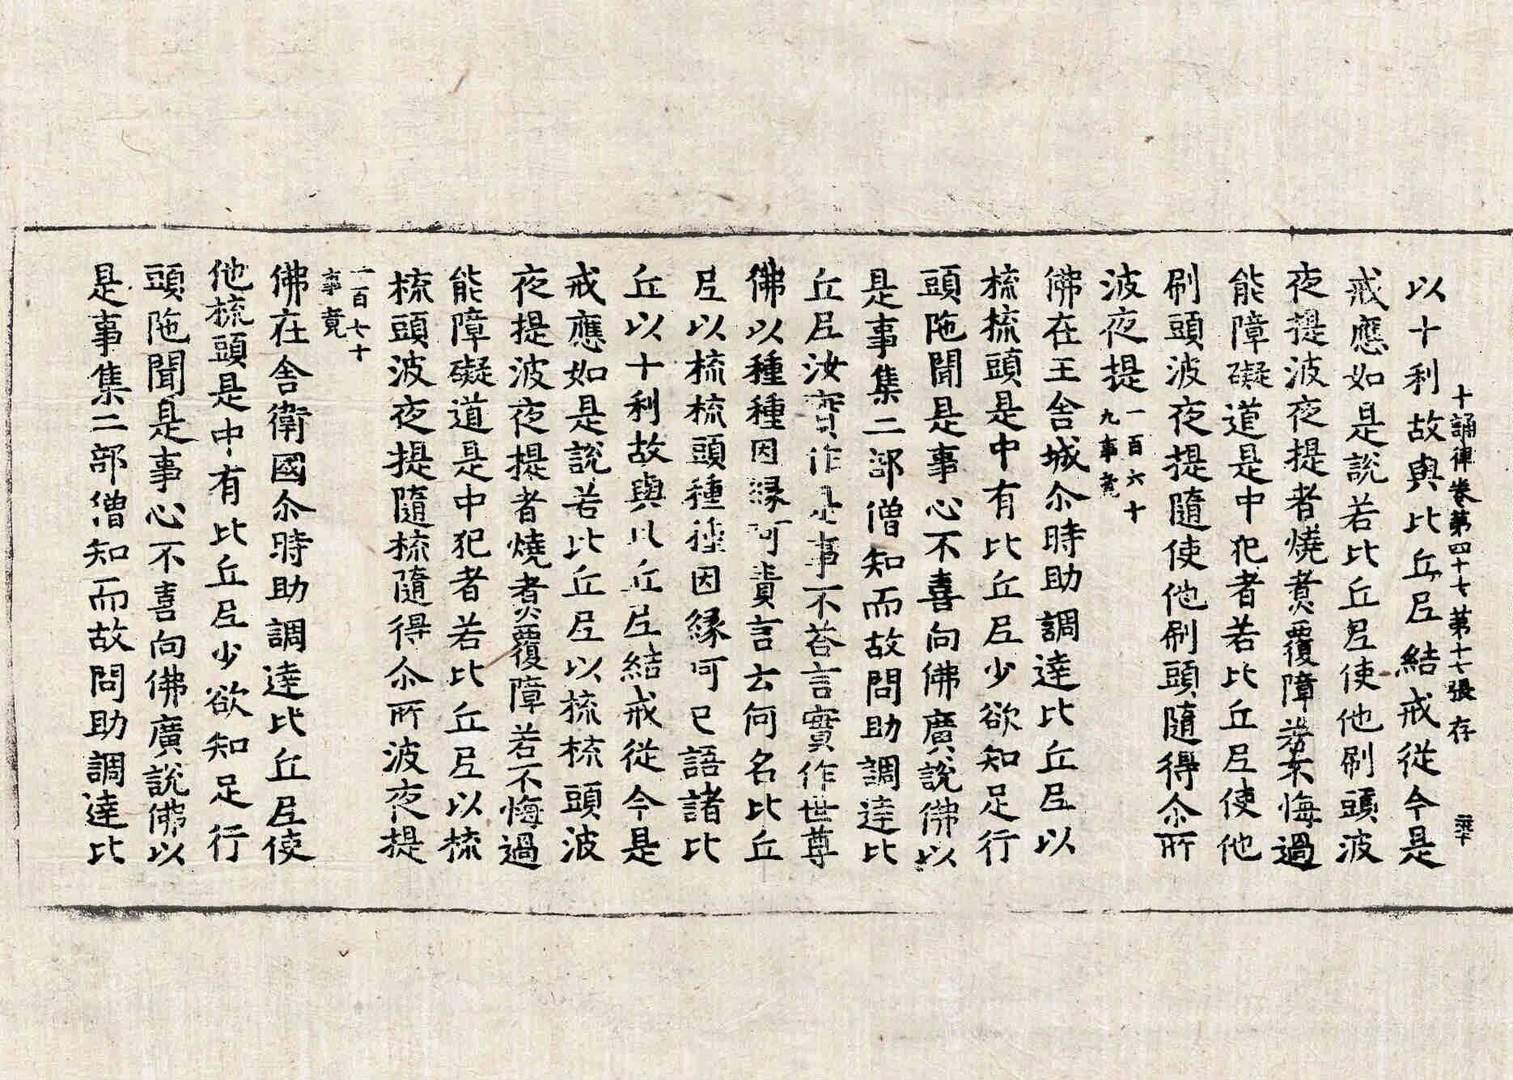 十誦律卷第四十七 第十七張 存
以十利故與比丘尼結戒從今是
戒應如是說若比丘尼使他刷頭波
夜提波夜提者燒煑覆障若不悔過
能障礙道是中犯者若比丘尼使他
刷頭波夜提隨使他刷頭隨得尒所
波夜提一百六十九事竟
佛在王舍城尒時助調達比丘尼以
梳梳頭是中有比丘尼少欲知足行
頭陁聞是事心不喜向佛廣說佛以
是事集二部僧知而故問助調達比
丘尼汝實作是事不荅言實作世尊
佛以種種因縁呵責言云何名比丘
尼以梳梳頭種種因縁呵已語諸比
丘以十利故與比丘尼結戒從今是
戒應如是說若比丘尼以梳梳頭波
夜提波夜提者燒煑覆障若不悔過
能障礙道是中犯者若比丘尼以梳
梳頭波夜提隨梳隨得尒所波夜提
一百七十事竟
佛在舍衛國尒時助調達比丘尼使
他梳頭是中有比丘尼少欲知足行
頭陁聞是事心不喜向佛廣說佛以
是事集二部僧知而故問助調達比